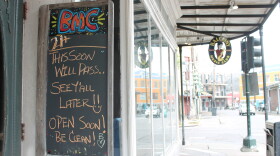 BMC
THIS SOON
WILL PASS..
SEE Y'ALL
LATER!!
OPEN SOON!
BE CLEAN!